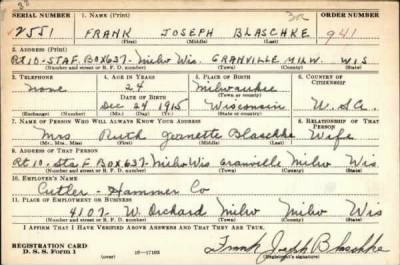 SERIAL NUMBER 1. NAME (Print) ORDER NUMBER
2551 FRANK JOSEPH BLASCHKE 941
(First) (Middle) (Last)
2. ADDRESS (Print)
Rt 10-STA F. BOX 637- Milw Wis. GRANVILLE MILW. WIS
(Number and street or R. F. D. number) (Town) (County) (State)
3. TELEPHONE 4. AGE IN YEARS 5. PLACE OF BIRTH 6. COUNTRY OF CITIZENSHIP
none 24 Milwaukee
DATE OF BIRTH (Town or county)
Dec 24 1915 Wisconsin U.S.A.
(Exchange) (Number) (Mo.) (Day) (Yr.) (State or country)
7. NAME OF PERSON WHO WILL ALWAYS KNOW YOUR ADDRESS 8. RELATIONSHIP OF THAT PERSON
Mrs Ruth Jeanette Blaschke Wife
(Mr., Mrs., Miss) (First) (Middle) (Last)
9. ADDRESS OF THAT PERSON
Rt. 10. Sta. F Box 637- Milw Wis Granville Milw Wis
(Number and street or R. F. D. number) (Town) (County) (State)
10. EMPLOYER'S NAME
Cutler-Hammer Co
11. PLACE OF EMPLOYMENT OR BUSINESS
4107- W. Orchard Milw Milw Wis
(Number and street or R. F. D. number) (Town) (County) (State)
I AFFIRM THAT I HAVE VERIFIED ABOVE ANSWERS AND THAT THEY ARE TRUE.
REGISTRATION CARD
D. S. S. Form 1 (over) 16-17105 Frank Joseph Blaschke
(Registrant's signature)